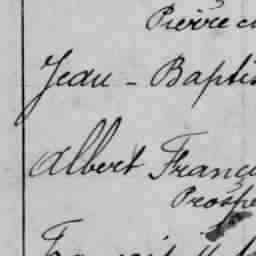 Pierre
Jean - Baptis
Albert Franç
Prospe